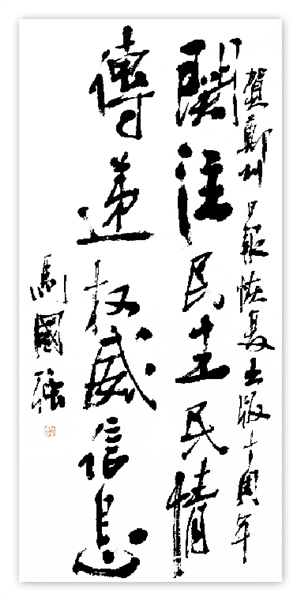 賀鄭州日報恢复出版十周年
關注民生民情
傳遞权威信息
馬國強